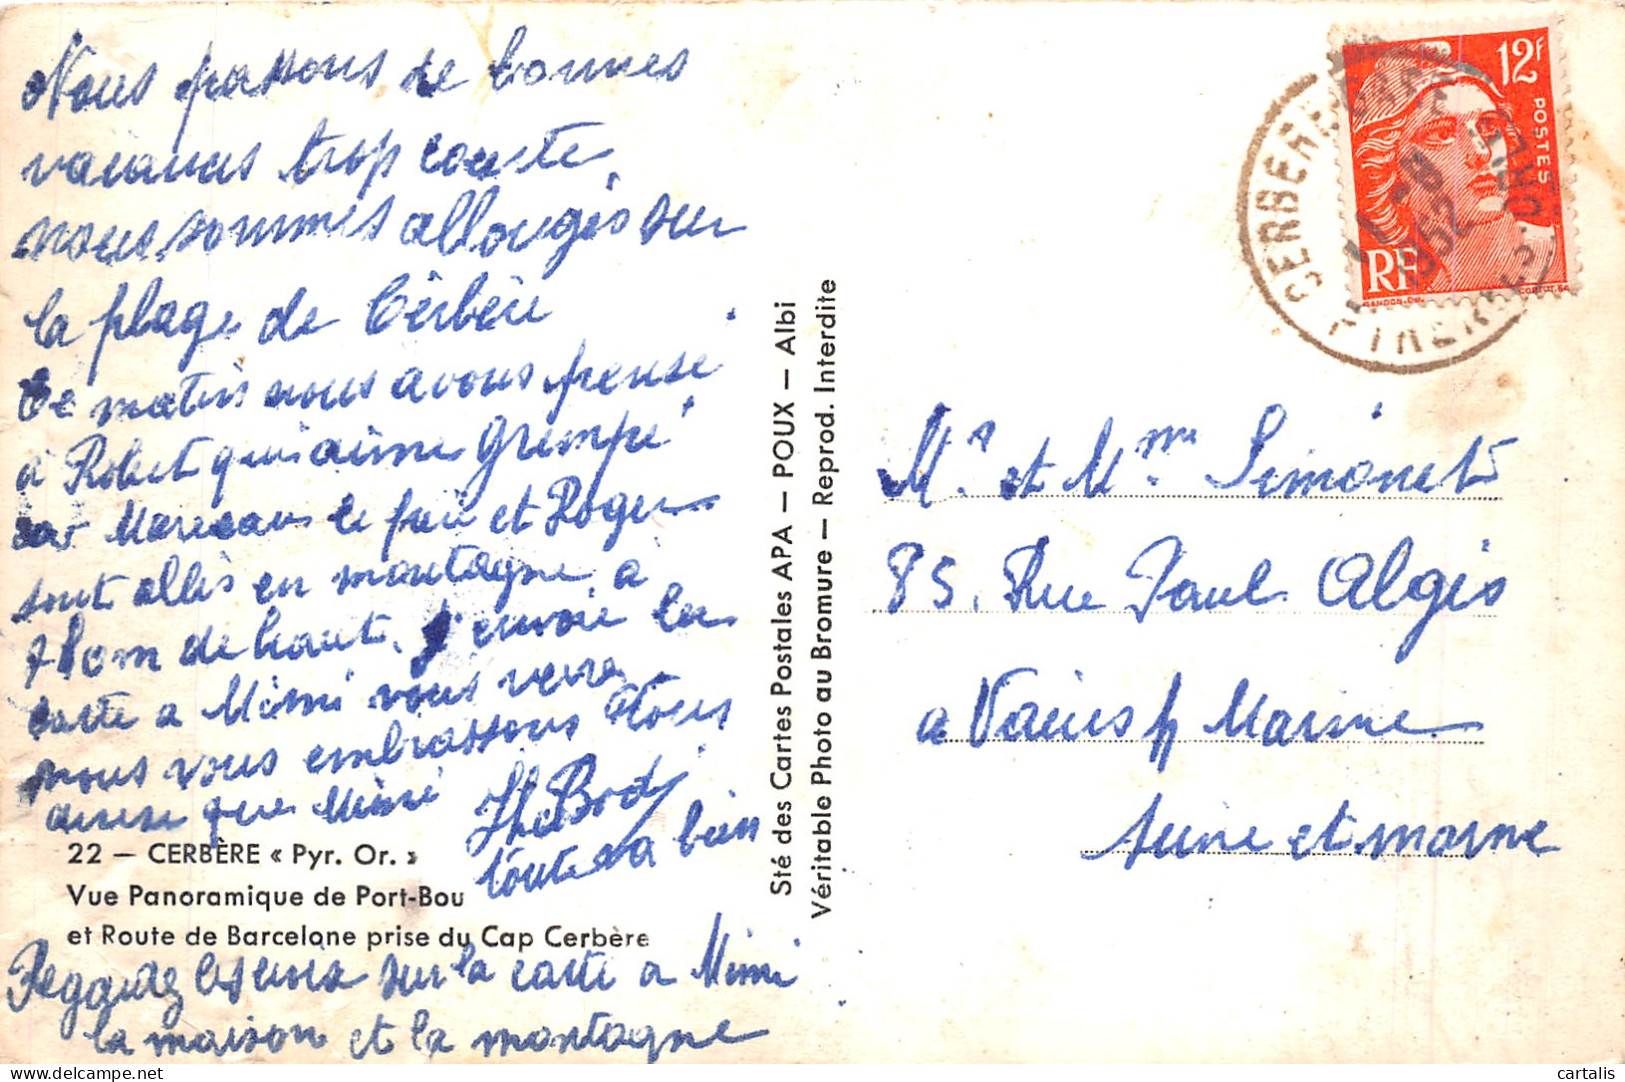 Nous passons de bonnes
vacances trop courte
nous sommes allongés sur
la plage de Cérbère
Ce matin nous avons pensé
à Robert qui aime grimpé
car Marceau le frère et Roger
sont allés en montagne a
780m de haut. J'envoie la
carte a Mimi vous verre
nous vous embrassons tous
ainsi que Mimi
toute va bien
22 — CERBÈRE « Pyr. Or. »
Vue Panoramique de Port-Bou
et Route de Barcelone prise du Cap Cerbère
Regardez les croix sur la carte a Mimi
la maison et la montagne
Sté des Cartes Postales APA — POUX — Albi
Véritable Photo au Bromure — Reprod. Interdite
12F
POSTES
RF
GANDON
CERBERE
1952
PYRENEES-ORIES
Mr. et Mme Simonet
85. Rue Paul Algis
a Vaires s/ Marne
Seine et marne
cartalis